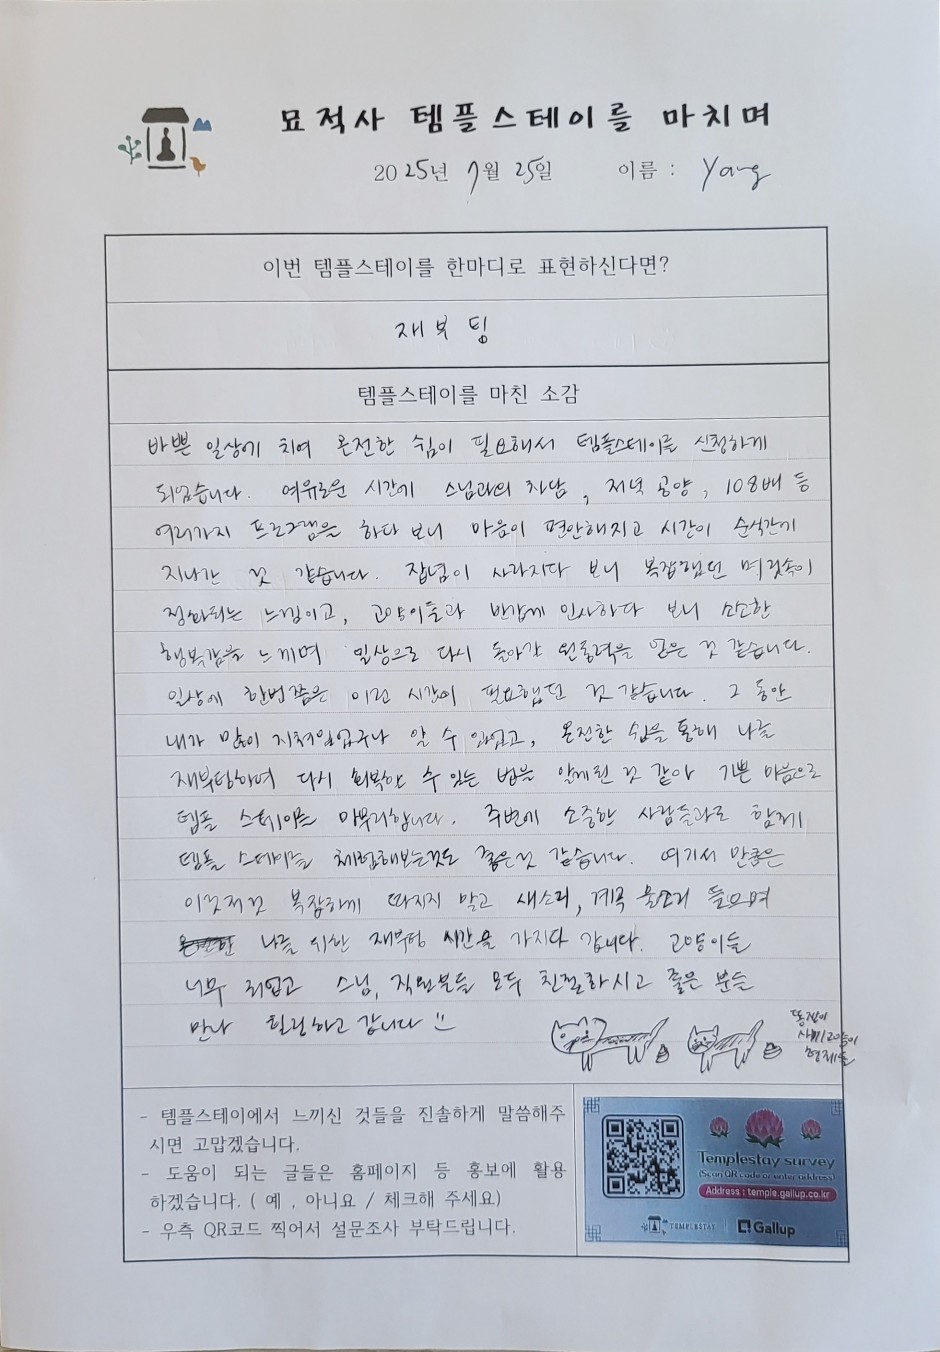 묘적사 템플스테이를 마치며
2025년 7월 25일 이름 : Yang
이번 템플스테이를 한마디로 표현하신다면?
재부팅
템플스테이를 마친 소감
바쁜 일상에 치여 온전한 쉼이 필요해서 템플스테이를 신청하게
되었습니다. 여유로운 시간에 스님과의 차담, 저녁 공양, 108배 등
여러가지 프로그램을 하다 보니 마음이 편안해지고 시간이 순식간에
지나간 것 같습니다. 잡념이 사라지다 보니 복잡했던 머릿속이
정화되는 느낌이고, 고양이들과 반갑게 인사하다 보니 소소한
행복감을 느끼며 일상으로 다시 돌아갈 원동력을 얻은 것 같습니다.
일상에 한번쯤은 이런 시간이 필요했던 것 같습니다. 그 동안
내가 많이 지쳐있었구나 알 수 있었고, 온전한 쉼을 통해 나를
재부팅하며 다시 회복할 수 있는 법을 알게된 것 같아 기쁜 마음으로
템플 스테이를 마무리합니다. 주변에 소중한 사람들과도 함께
템플 스테이를 체험해보는것도 좋은것 같습니다. 여기서 만큼은
이것저것 복잡하게 따지지 말고 새소리, 계곡 물소리 들으며
나를 위한 재부팅 시간을 가지다 갑니다. 고양이들
너무 귀엽고 스님, 직원분들 모두 친절하시고 좋은 분들
만나 힐링하고 갑니다
똥쟁이
새끼고양이
형제들
- 템플스테이에서 느끼신 것들을 진솔하게 말씀해주
시면 고맙겠습니다.
- 도움이 되는 글들은 홈페이지 등 홍보에 활용
하겠습니다. ( 예 , 아니요 / 체크해 주세요)
- 우측 QR코드 찍어서 설문조사 부탁드립니다.
Templestay survey
(Scan QR code or enter address)
Address : temple.gallup.co.kr
TEMPLESTAY Gallup